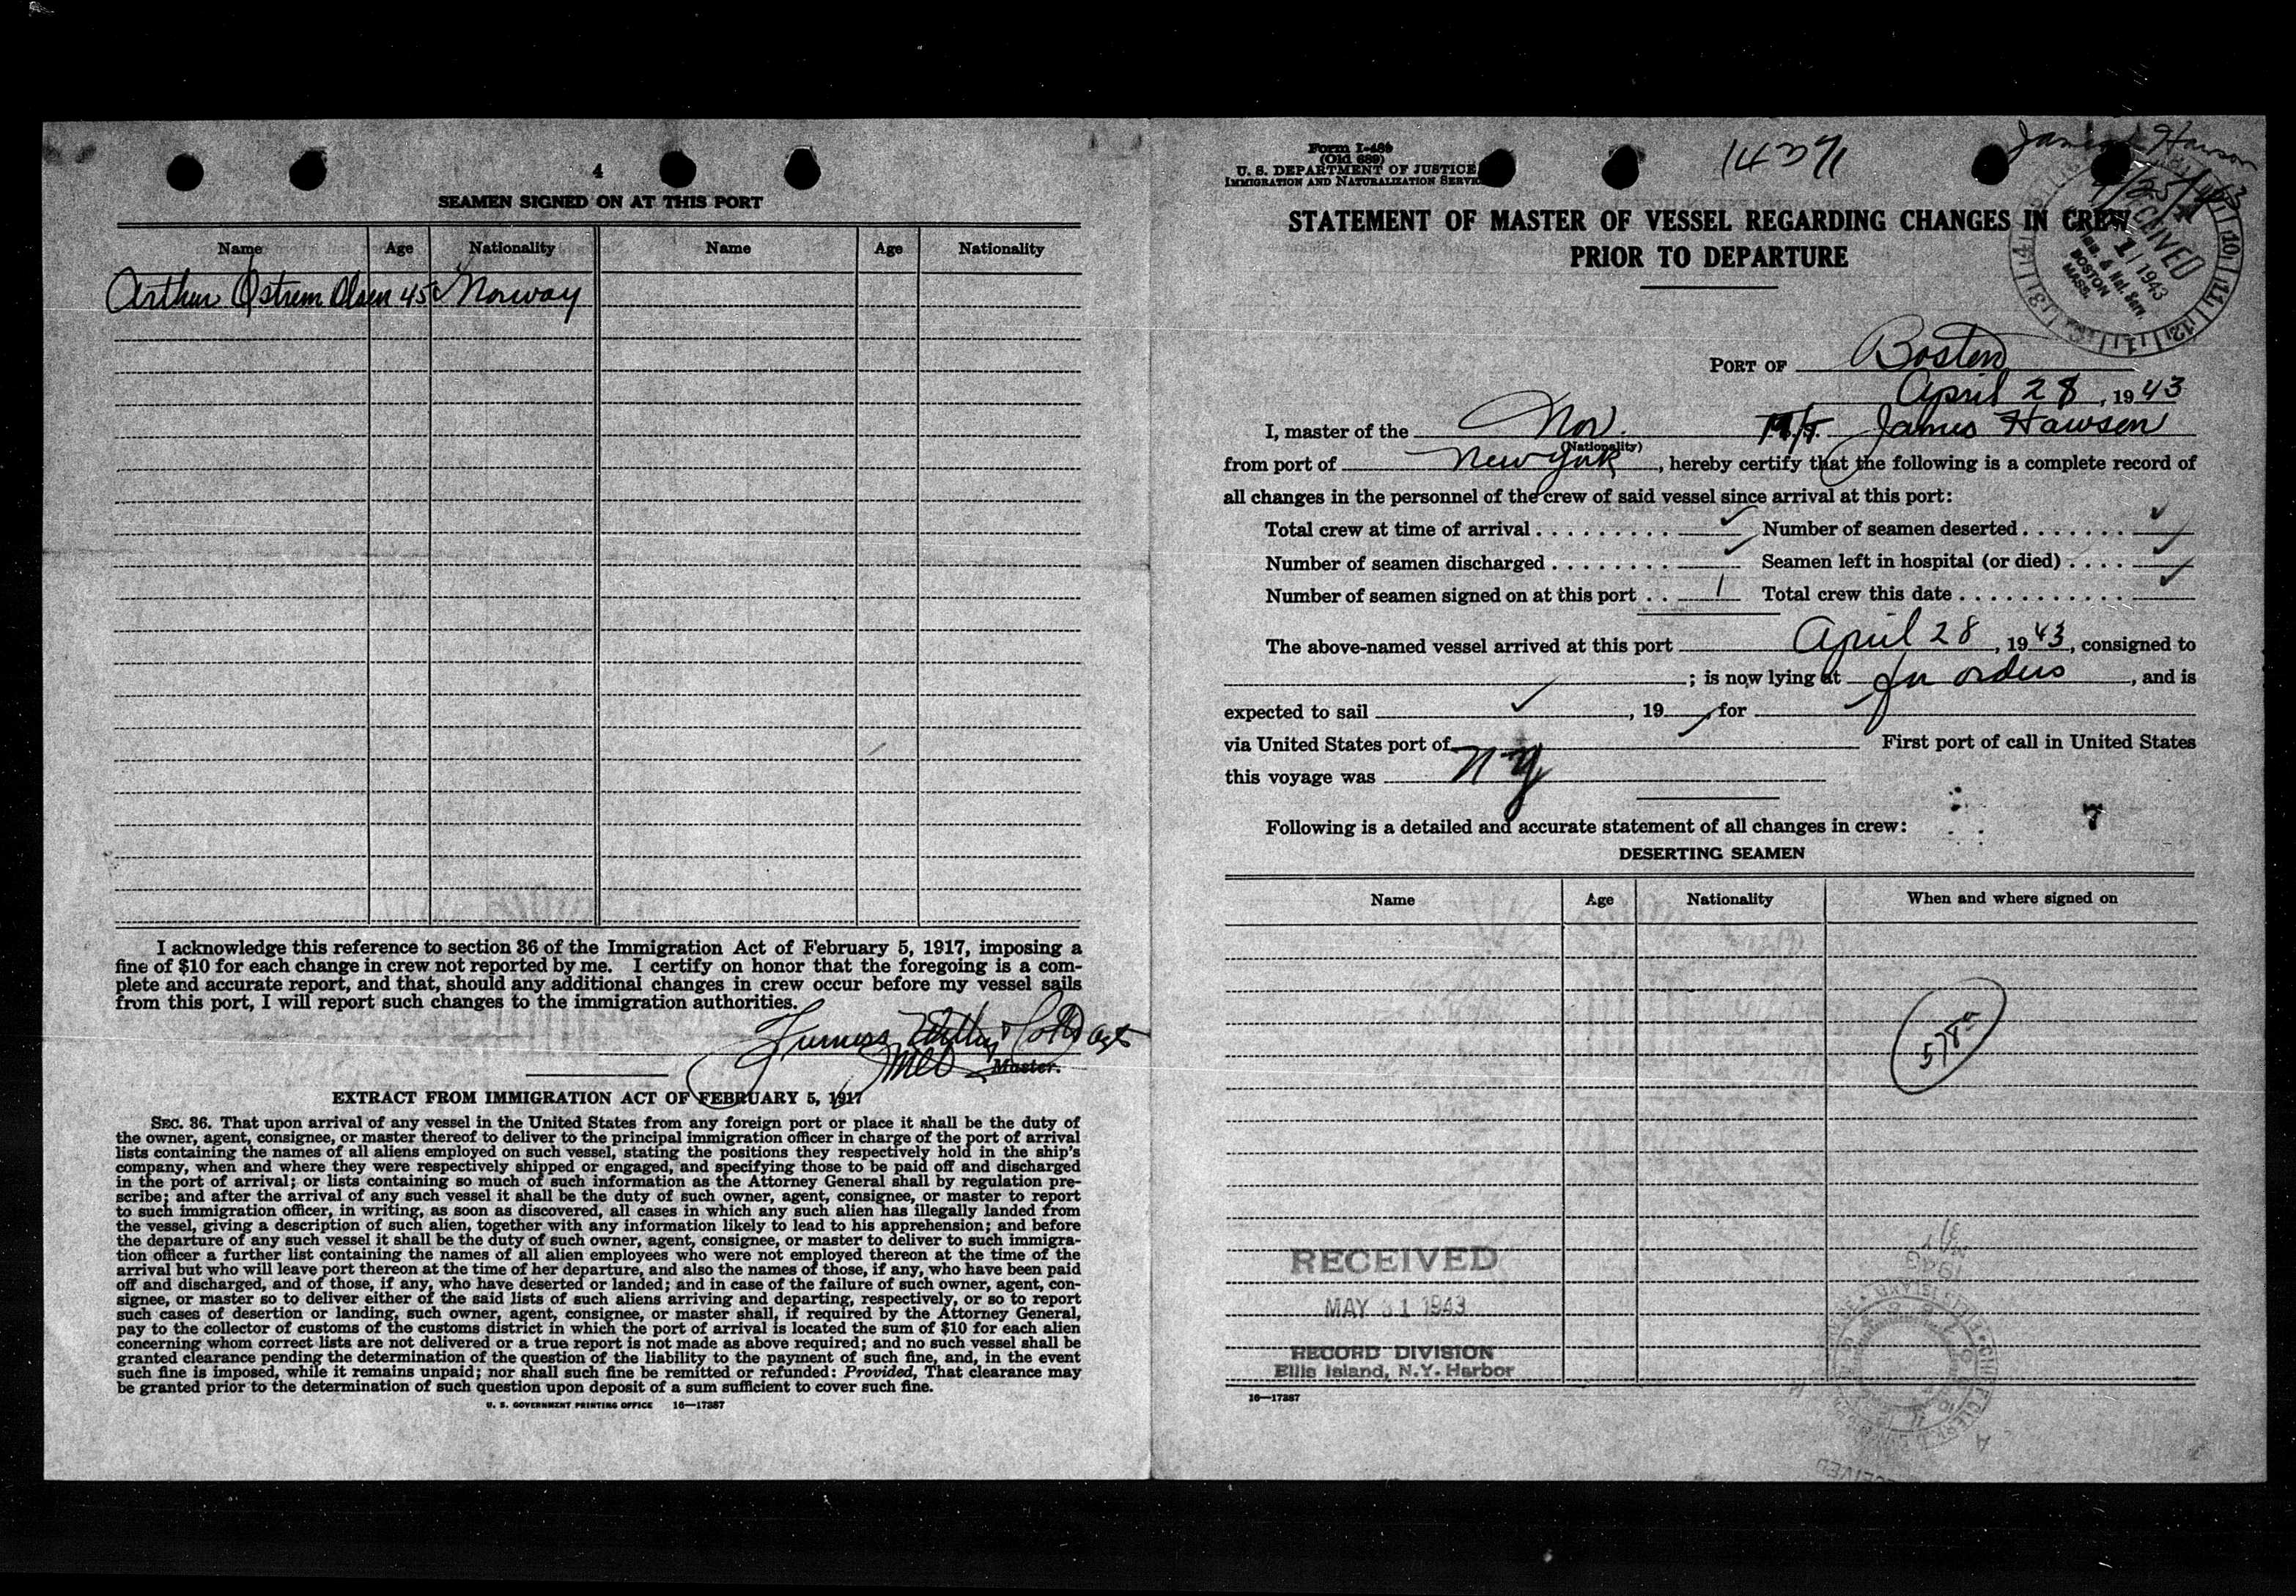 4
SEAMEN SIGNED ON AT THIS PORT
Name Age Nationality Name Age Nationality
Arthur Ostrem Olsen 45 Norway
I acknowledge this reference to section 36 of the Immigration Act of February 5, 1917, imposing a
fine of $10 for each change in crew not reported by me. I certify on honor that the foregoing is a com-
plete and accurate report, and that, should any additional changes in crew occur before my vessel sails
from this port, I will report such changes to the immigration authorities.
Furness Withy & Co Ltd Agts
Master.
EXTRACT FROM IMMIGRATION ACT OF FEBRUARY 5, 1917
SEC. 36. That upon arrival of any vessel in the United States from any foreign port or place it shall be the duty of
the owner, agent, consignee, or master thereof to deliver to the principal immigration officer in charge of the port of arrival
lists containing the names of all aliens employed on such vessel, stating the positions they respectively hold in the ship's
company, when and where they were respectively shipped or engaged, and specifying those to be paid off and discharged
in the port of arrival; or lists containing so much of such information as the Attorney General shall by regulation pre-
scribe; and after the arrival of any such vessel it shall be the duty of such owner, agent, consignee, or master to report
to such immigration officer, in writing, as soon as discovered, all cases in which any such alien has illegally landed from
the vessel, giving a description of such alien, together with any information likely to lead to his apprehension; and before
the departure of any such vessel it shall be the duty of such owner, agent, consignee, or master to deliver to such immigra-
tion officer a further list containing the names of all alien employees who were not employed thereon at the time of the
arrival but who will leave port thereon at the time of her departure, and also the names of those, if any, who have been paid
off and discharged, and of those, if any, who have deserted or landed; and in case of the failure of such owner, agent, con-
signee, or master so to deliver either of the said lists of such aliens arriving and departing, respectively, or so to report
such cases of desertion or landing, such owner, agent, consignee, or master shall, if required by the Attorney General,
pay to the collector of customs of the customs district in which the port of arrival is located the sum of $10 for each alien
concerning whom correct lists are not delivered or a true report is not made as above required; and no such vessel shall be
granted clearance pending the determination of the question of the liability to the payment of such fine, and, in the event
such fine is imposed, while it remains unpaid; nor shall such fine be remitted or refunded: Provided, That clearance may
be granted prior to the determination of such question upon deposit of a sum sufficient to cover such fine.
U. S. GOVERNMENT PRINTING OFFICE 16—17387
Form I-489
(Old 689)
U. S. DEPARTMENT OF JUSTICE
IMMIGRATION AND NATURALIZATION SERVICE
James Hawson
STATEMENT OF MASTER OF VESSEL REGARDING CHANGES IN CREW
PRIOR TO DEPARTURE
RECEIVED
1943
Imm. & Nat. Serv.
BOSTON
MASS.
PORT OF Boston
April 28, 1943
I, master of the Nor. M/T. James Hawson
(Nationality)
from port of New York, hereby certify that the following is a complete record of
all changes in the personnel of the crew of said vessel since arrival at this port:
Total crew at time of arrival . . . . . . . . . ✓ Number of seamen deserted . . . . . . . ✓
Number of seamen discharged . . . . . . . . ✓ Seamen left in hospital (or died) . . . . ✓
Number of seamen signed on at this port . . 1 Total crew this date . . . . . . . . . . . ✓
The above-named vessel arrived at this port April 28, 1943, consigned to
; is now lying at for orders, and is
expected to sail ✓, 19 , for
via United States port of First port of call in United States
this voyage was N Y
Following is a detailed and accurate statement of all changes in crew: 7
DESERTING SEAMEN
Name Age Nationality When and where signed on
578a
RECEIVED
MAY 31 1943
RECORD DIVISION
Ellis Island, N.Y. Harbor
16—17387